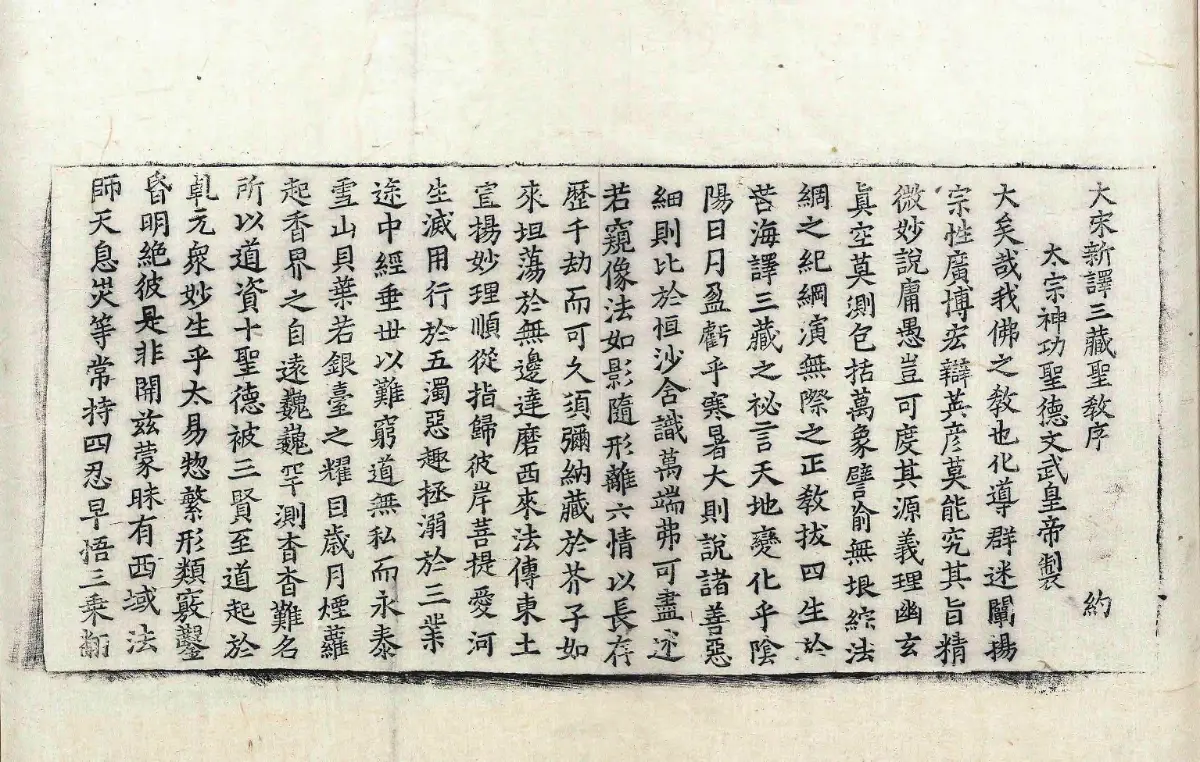 大宋新譯三藏聖教序　約
太宗神功聖德文武皇帝製
大矣哉我佛之教也化導群迷闡揚
宗性廣博宏辯英彦莫能究其旨精
微妙說庸愚豈可度其源義理幽玄
真空莫測包括萬象譬喻無垠綜法
綱之紀綱演無際之正教拔四生於
苦海譯三藏之祕言天地變化乎陰
陽日月盈虧乎寒暑大則說諸善惡
細則比於恒沙含識萬端弗可盡述
若窺像法如影隨形離六情以長存
歷千劫而可久須彌納藏於芥子如
來坦蕩於無邊達磨西來法傳東土
宣揚妙理順從指歸彼岸菩提愛河
生滅用行於五濁惡趣拯溺於三業
途中經垂世以難窮道無私而永泰
雪山貝葉若銀臺之耀目歲月煙蘿
起香界之自遠巍巍罕測杳杳難名
所以道資十聖德被三賢至道起於
乹元衆妙生乎太易惣繁形類竅鑿
昏明絕彼是非開兹蒙昧有西域法
師天息灾等常持四忍早悟三乘翻